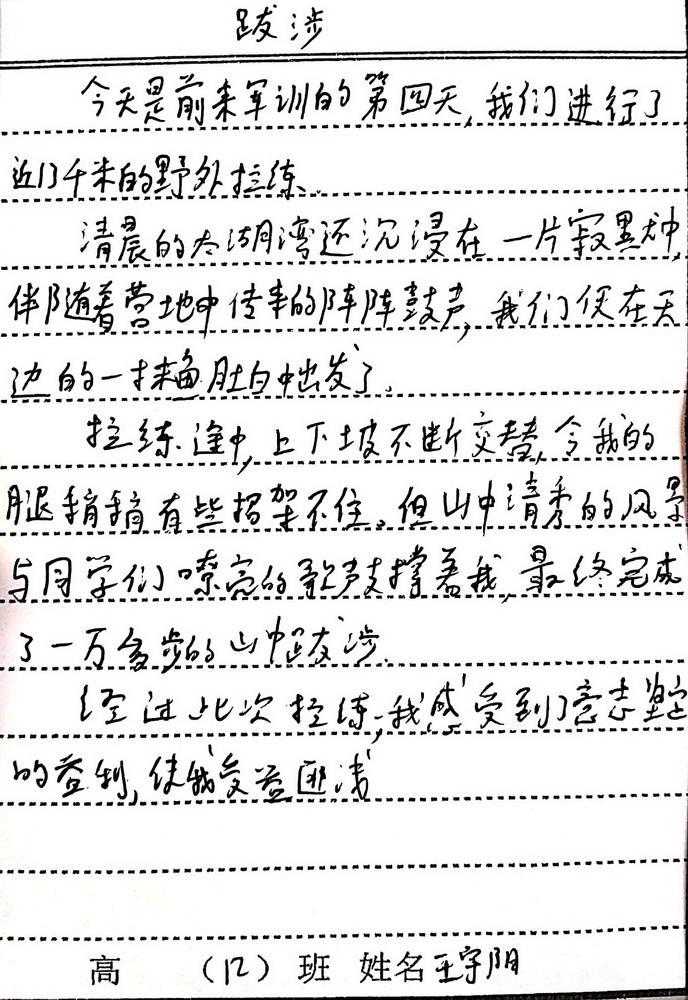 跋涉
今天是前来军训的第四天,我们进行了
近13千米的野外拉练.
清晨的太湖湾还沉浸在一片寂黑中,
伴随着营地中传来的阵阵鼓声,我们便在天
边的一抹鱼肚白中出发了.
拉练途中,上下坡不断交替,令我的
腿稍稍有些招架不住。但山中清秀的风景
与同学们嘹亮的歌声支撑着我,最终完成
了一万多步的山中跋涉.
经过此次拉练,我感受到了意志坚定
的益利,使我受益匪浅
高 (12) 班 姓名 王宇阳